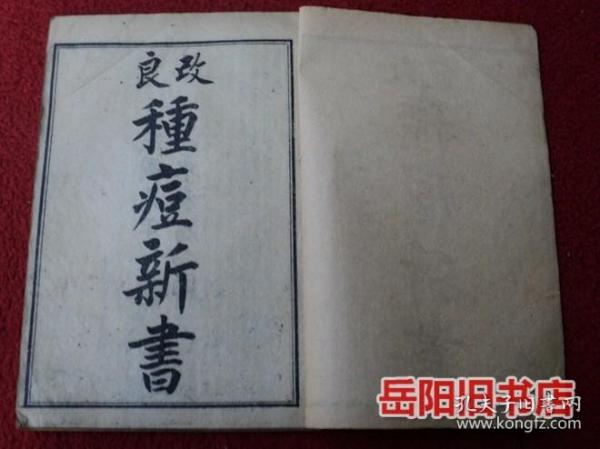 改良
種痘新書
岳阳旧书店
孔夫子旧书网
www.kongfz.com